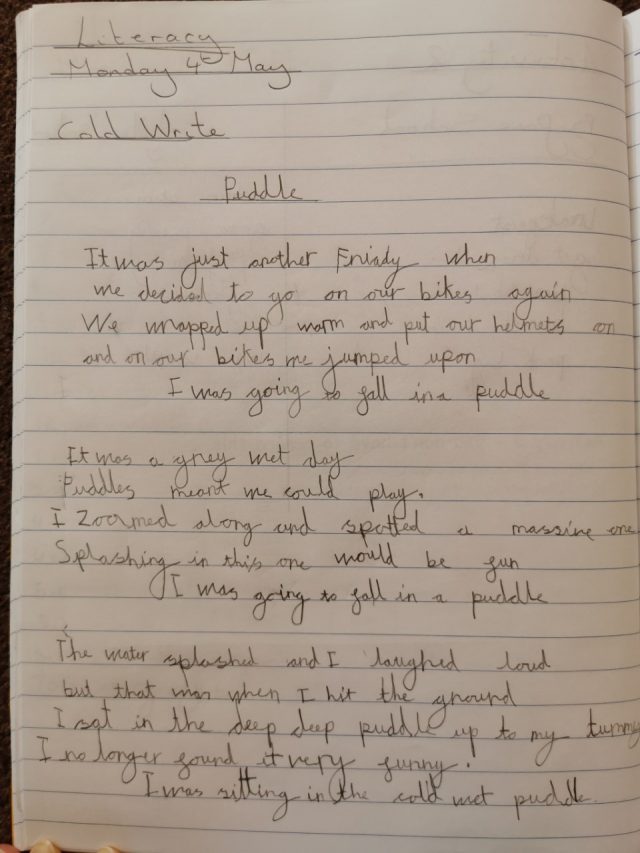 Literacy
Monday 4th May
Cold Write
Puddle
It was just another Friady when
we decided to go on our bikes again
We wrapped up warm and put our helmets on
and on our bikes we jumped upon
I was going to fall in a puddle
It was a grey wet day
Puddles meant we could play.
I Zoomed along and spotted a massive one
Splashing in this one would be fun
I was going to fall in a puddle
The water splashed and I laughed loud
but that was when I hit the ground
I sat in the deep deep puddle up to my tummy
I no longer found it very funny.
I was sitting in the cold wet puddle.